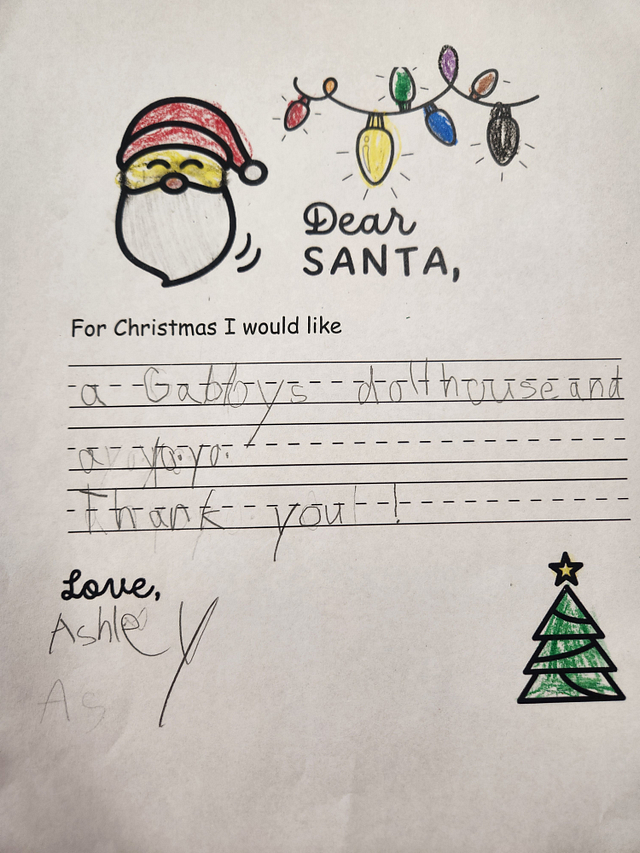 Dear
SANTA,
For Christmas I would like
a Gabbys dollhouse and
a yoyo.
Thank you!
Love,
Ashley
As